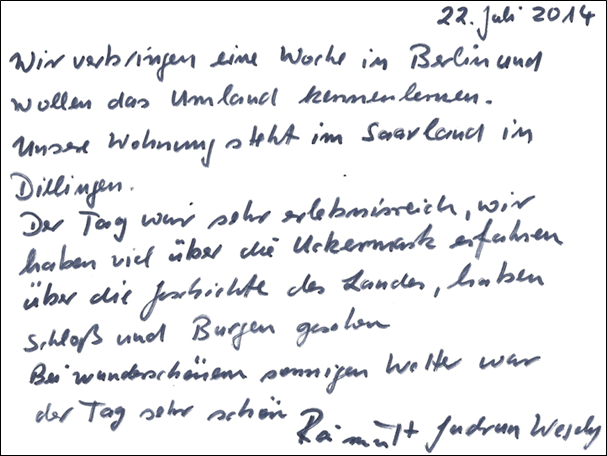 22. Juli 2014
Wir verbringen eine Woche in Berlin und
wollen das Umland kennenlernen.
Unsere Wohnung steht im Saarland in
Dillingen.
Der Tag war sehr erlebnisreich, wir
haben viel über die Uckermark erfahren
über die Geschichte des Landes, haben
Schloß und Burgen gesehen
Bei wunderschönem sonnigen Wetter war
der Tag sehr schön
Gudrun